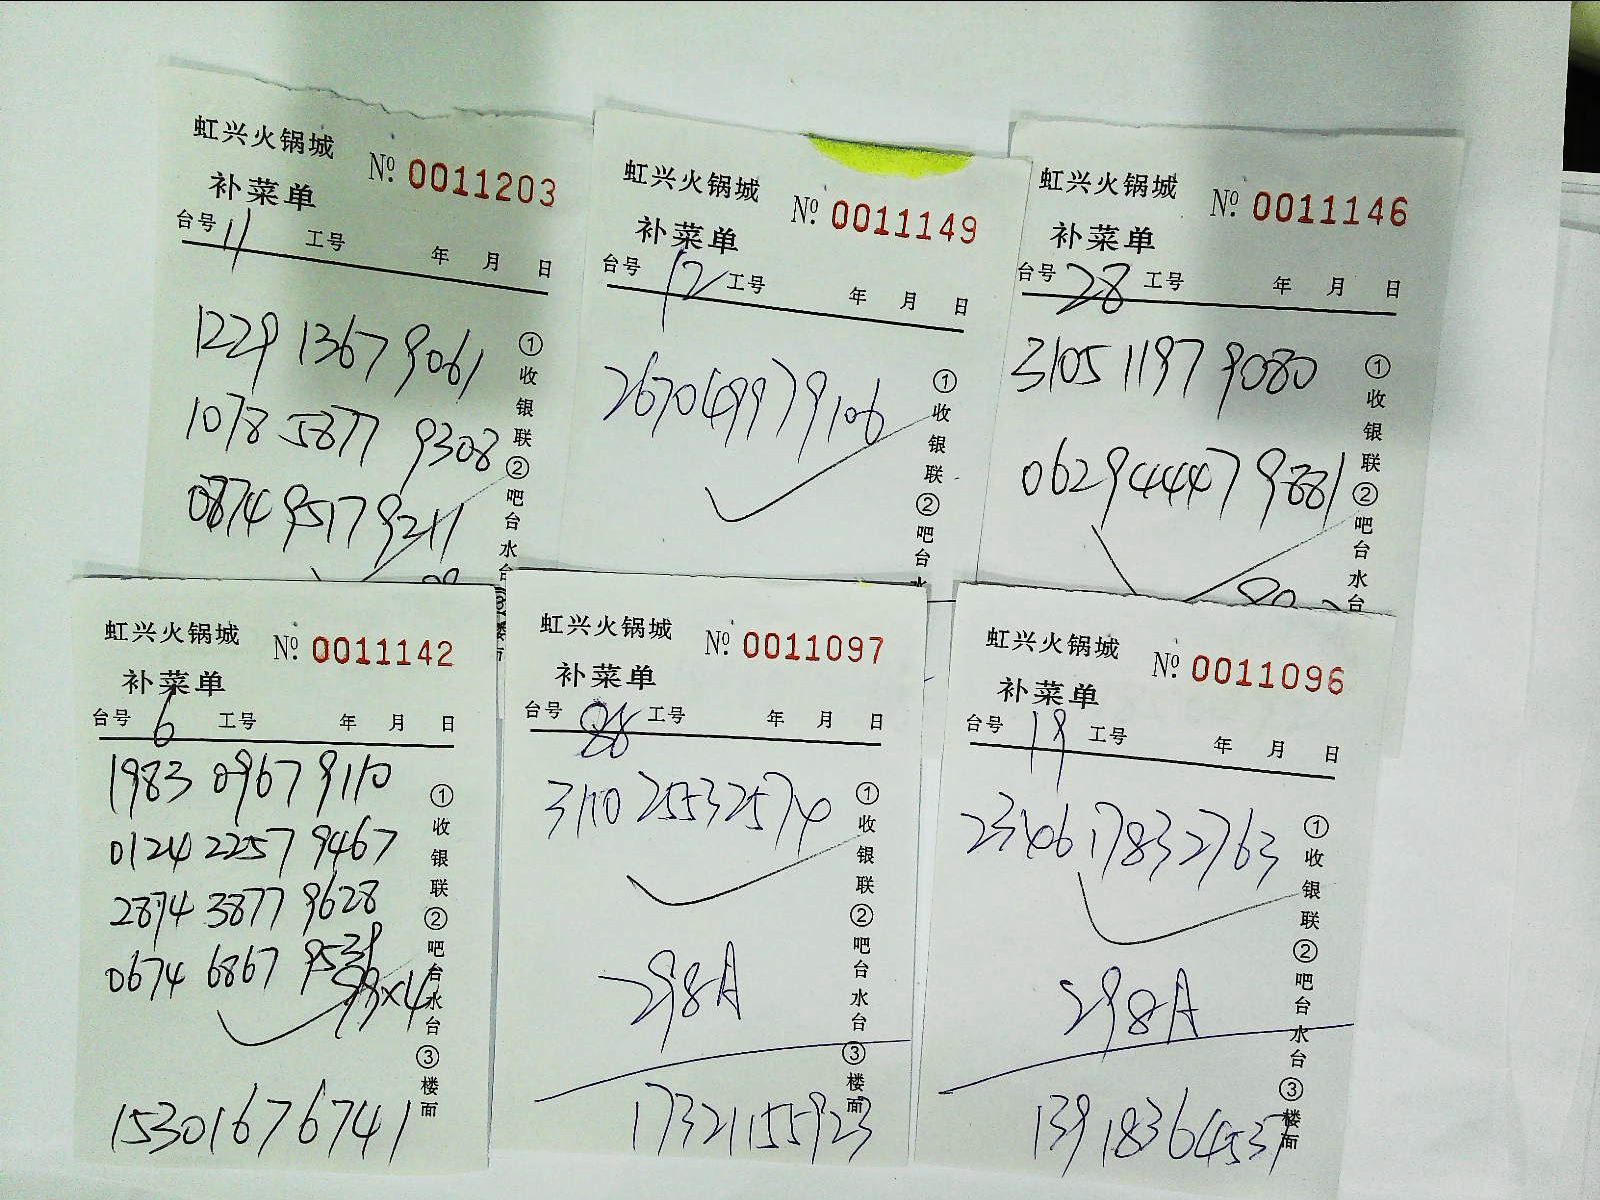 虹兴火锅城 No. 0011203
补菜单
台号 11 工号 年 月 日
1229 1367 9061
1078 5877 9308
0874 9517 9211
①收银联②吧台水台
虹兴火锅城 No. 0011149
补菜单
台号 12 工号 年 月 日
2670 4997 9106
①收银联②吧台水
虹兴火锅城 No. 0011146
补菜单
台号 28 工号 年 月 日
3105 1197 9080
0629 4447 9881
①收银联②吧台水台
虹兴火锅城 No. 0011142
补菜单
台号 6 工号 年 月 日
1983 0967 9110
0124 2257 9467
2874 3877 9628
0674 6867 9539
99×4
15301676741
①收银联②吧台水台③楼面
虹兴火锅城 No. 0011097
补菜单
台号 28 工号 年 月 日
3110 2553 2574
298A
17321155923
①收银联②吧台水台③楼面
虹兴火锅城 No. 0011096
补菜单
台号 19 工号 年 月 日
2346 1783 2763
298A
13918364537
①收银联②吧台水台③楼面